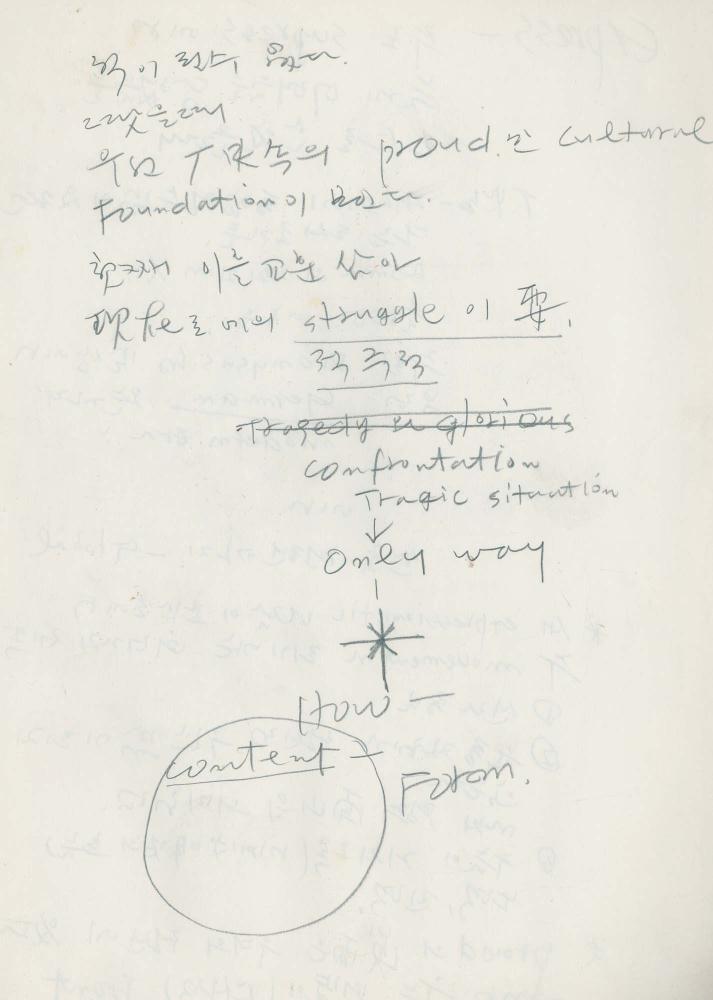 이 될수 있다.
그랬을때
우리 민족의 proud.한 cultural
Foundation이 보인다.
이를 교훈 삼아
現在로 에의 struggle 이 要.
적 주력
Tragedy is glorious
confrontation
Tragic situation
↓
Only way
How —
content —
Form.